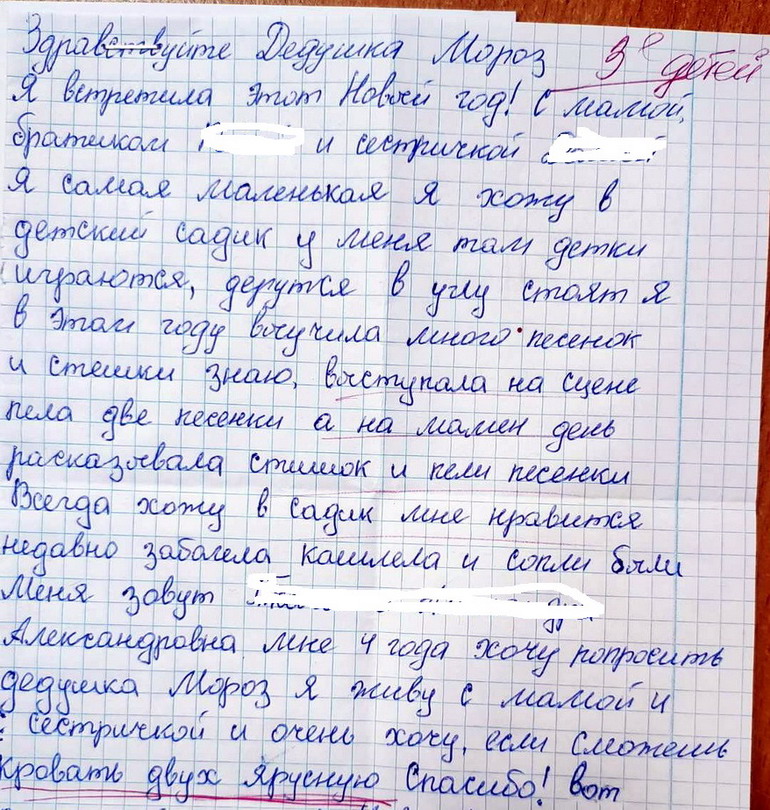 Здравствуйте Дедушка Мороз 3е детей
Я встретила этот Новый год! С мамой,
братиком и сестричкой
Я самая маленькая я хожу в
детский садик у меня там детки
играются, дерутся в углу стоят я
в этом году выучила много песенок
и стешки знаю, выступала на сцене
пела две песенки а на мамен день
расказывала стишок и пели песенки
Всегда хожу в садик мне нравится
недавно забалела кашлела и сопли были
Меня зовут
Александровна мне 4 года хочу попросить
дедушка Мороз я живу с мамой и
с сестричкой и очень хочу, если сможешь
кровать двух ярусную Спасибо! Вот